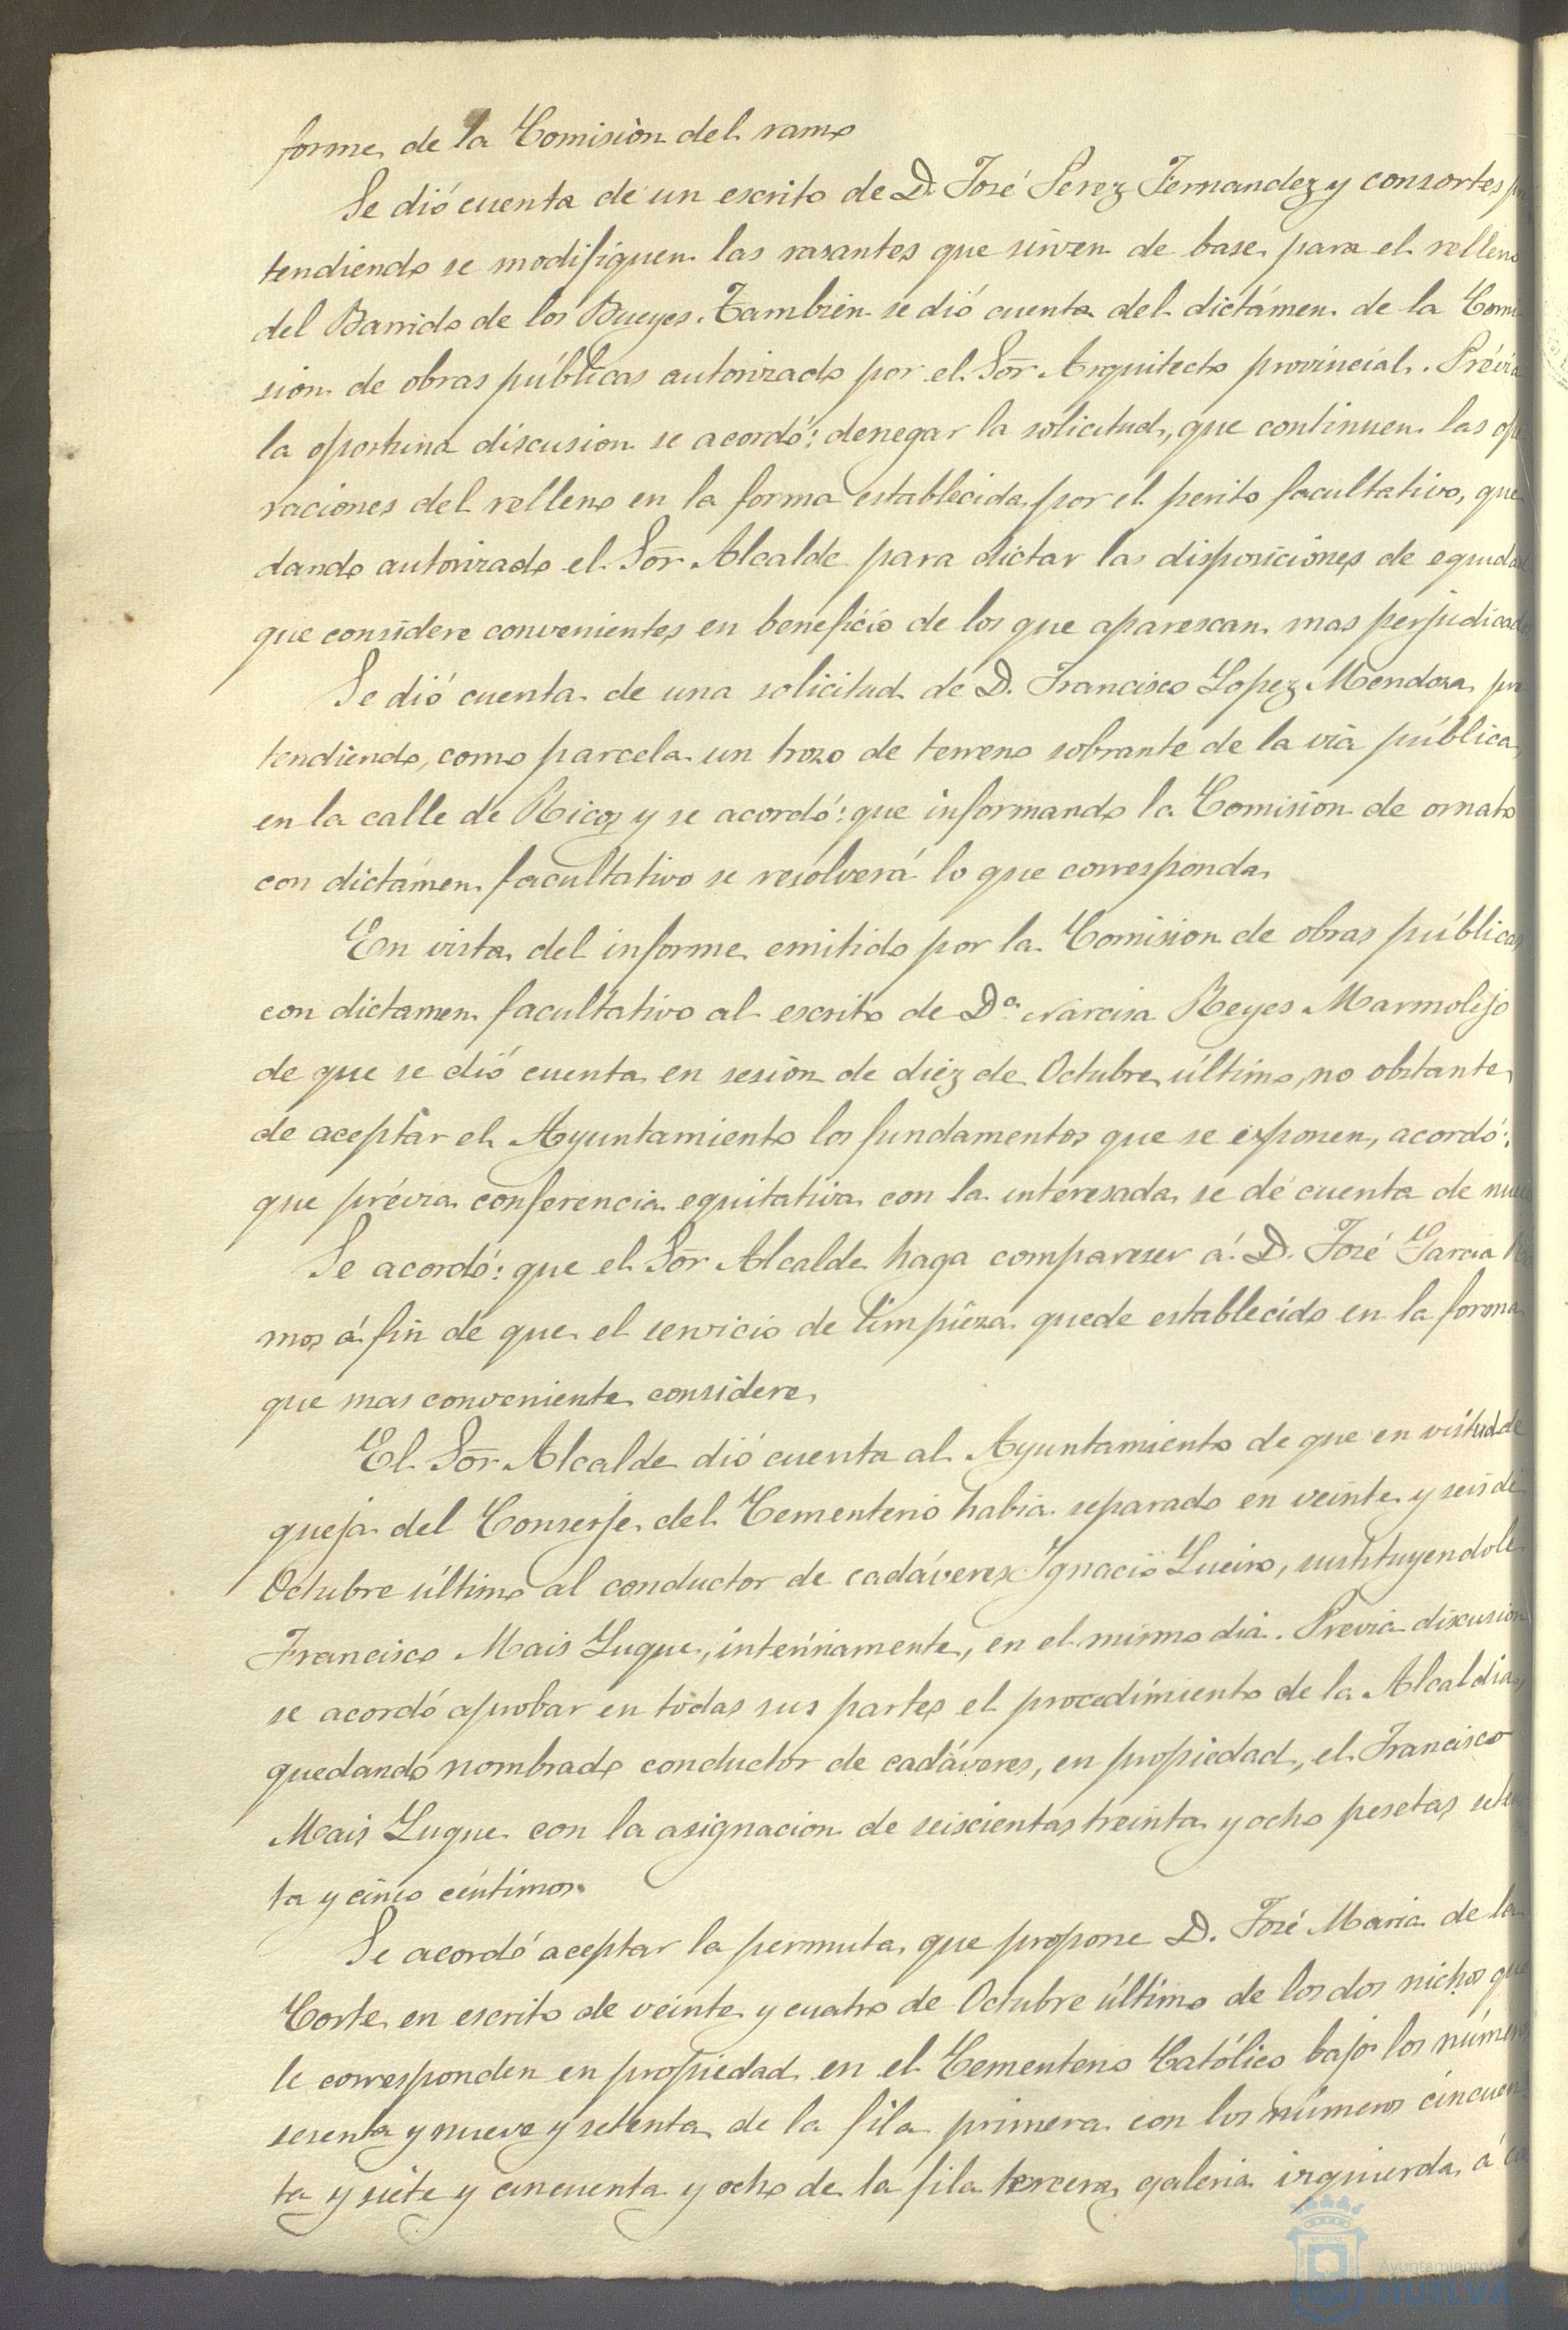 forme de la Comisión del ramo
Se dió cuenta de un escrito de D. José Perez Fernandez y consortes
tendiendo se modifiquen las rasantes que sirven de base para el relleno
del Barrido de los Bueyes. Tambien se dió cuenta del dictámen de la Comi
sion de obras públicas autorizado por el Sor Arquitecto provincial. Prévia
la oportuna discusion se acordó: denegar la solicitud, que continuen las ope
raciones del relleno en la forma establecida por el perito facultativo, que
dando autorizado el Sor Alcalde para dictar las disposiciones de equidad
que considere convenientes en beneficio de los que aparescan mas perjudicados
Se dió cuenta de una solicitud de D. Francisco Lopez Mendoza pre
tendiendo, como parcela un trozo de terreno sobrante de la via pública
en la calle de Ricos y se acordó: que informando la Comision de ornato
con dictámen facultativo se resolverá lo que corresponda
En vista del informe emitido por la Comision de obras públicas
con dictamen facultativo al escrito de Da. Narcisa Reyes Marmolijo
de que se dió cuenta en sesión de diez de Octubre último, no obstante
de aceptar el Ayuntamiento los fundamentos que se exponen, acordó:
que prévia conferencia equitativa con la interesada se dé cuenta de nuevo
Se acordó: que el Sor Alcalde haga compareser á D. José Garcia
mos á fin de que el servicio de limpieza quede establecido en la forma
que mas conveniente considere
El Sor Alcalde dió cuenta al Ayuntamiento de que en virtud de
queja del Conserje del Cementerio habia separado en veinte y seis de
Octubre último al conductor de cadáveres Ignacio Lueiro, sustituyendole
Francisco Mais Luque, interinamente, en el mismo dia. Previa discusion
se acordó aprobar en todas sus partes el procedimiento de la Alcaldia,
quedando nombrado conductor de cadáveres, en propiedad, el Francisco
Mais Luque con la asignacion de seiscientas treinta y ocho pesetas seten
ta y cinco céntimos.
Se acordó aceptar la permuta que propone D. José Maria de la
Corte en escrito de veinte y cuatro de Octubre último de los dos nichos que
le corresponden en propiedad en el Cementerio Católico bajo los números
sesenta y nueve y setenta de la fila primera con los números cincuen
ta y siete y cincuenta y ocho de la fila tercera galeria izquierda á
Ayuntamiento de
HUELVA